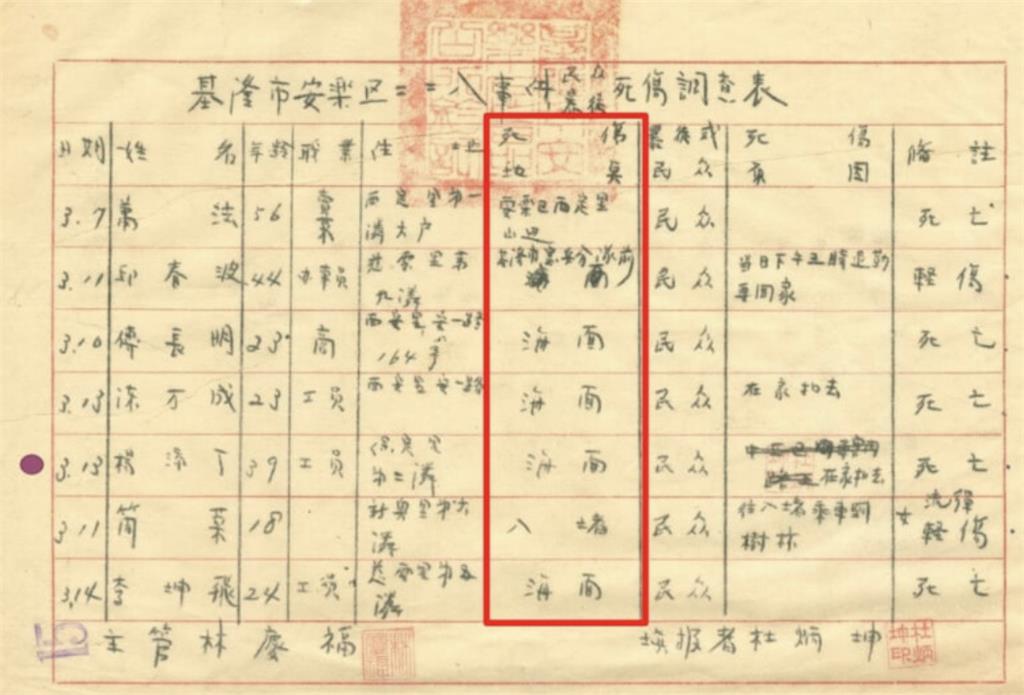 基隆市安樂区二二八事件民众暴徒死傷調查表
日期 姓名 年齡 職業 住址 死傷地臭 暴徒或民众 死傷原因 備註
3.7 萬法 56 賣菜 西定里第一 死亡
鄰六户 安樂区西定里山边 民众
3.11 邱春波 44 办事員 慈雲里第九鄰 海面 民众 当日下午五時退勤車回家 軽傷
3.10 傅長明 23 商 西安里安一路164号 海面 民众 死亡
3.13 涂万成 23 工員 西安里安一路 海面 民众 在家扣去 死亡
3.13 楊添丁 39 工員 保定里第二鄰 海面 民众 在家扣去 死亡
3.11 簡菜 18 新興里第六鄰 八堵 民众 住八堵乘車到樹林 女 流彈軽傷
3.14 李坤飛 24 工員 慈西里第五鄰 海面 民众 死亡
15 主管林慶福 填报者杜炳坤
杜炳坤印